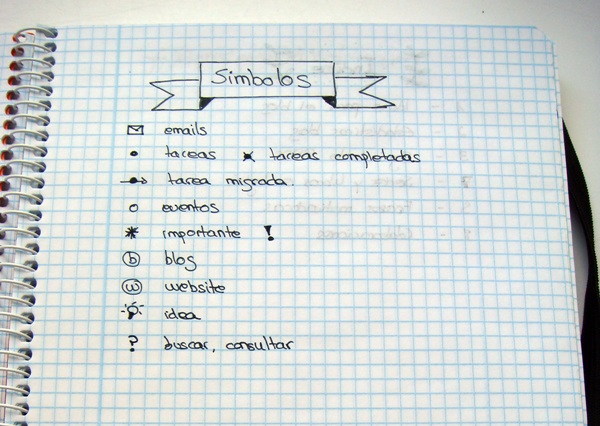 Simbolos
emails
tareas x tareas completadas
tarea migrada.
eventos
* importante !
b blog
w website
idea
? buscar, consultar